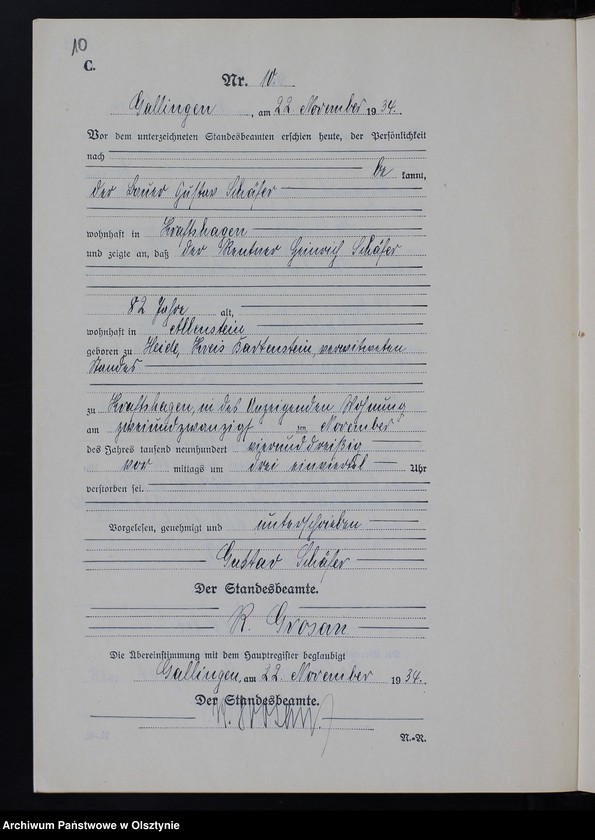 10
C.
Nr. 10.
Gallingen, am 22 November 1934.
Vor dem unterzeichneten Standesbeamten erschien heute, der Persönlichkeit
nach
be kannt,
der Bauer Gustav Schäfer
wohnhaft in Kraftshagen
und zeigte an, daß der Rentner Heinrich Schäfer
82 Jahre alt,
wohnhaft in Allenstein
geboren zu Heide, Kreis Bartenstein, verwitweten
Standes
zu Kraftshagen, in des Anzeigenden Wohnung
am zweiundzwanzigst ten November
des Jahres tausend neunhundert vierunddreißig
vor mittags um drei einviertel Uhr
verstorben sei.
Vorgelesen, genehmigt und unterschrieben
Gustav Schäfer
Der Standesbeamte.
R. Grosan
Die Übereinstimmung mit dem Hauptregister beglaubigt
Gallingen, am 22. November 1934.
Der Standesbeamte.
R. Grosan.
N.-R.
Archiwum Państwowe w Olsztynie